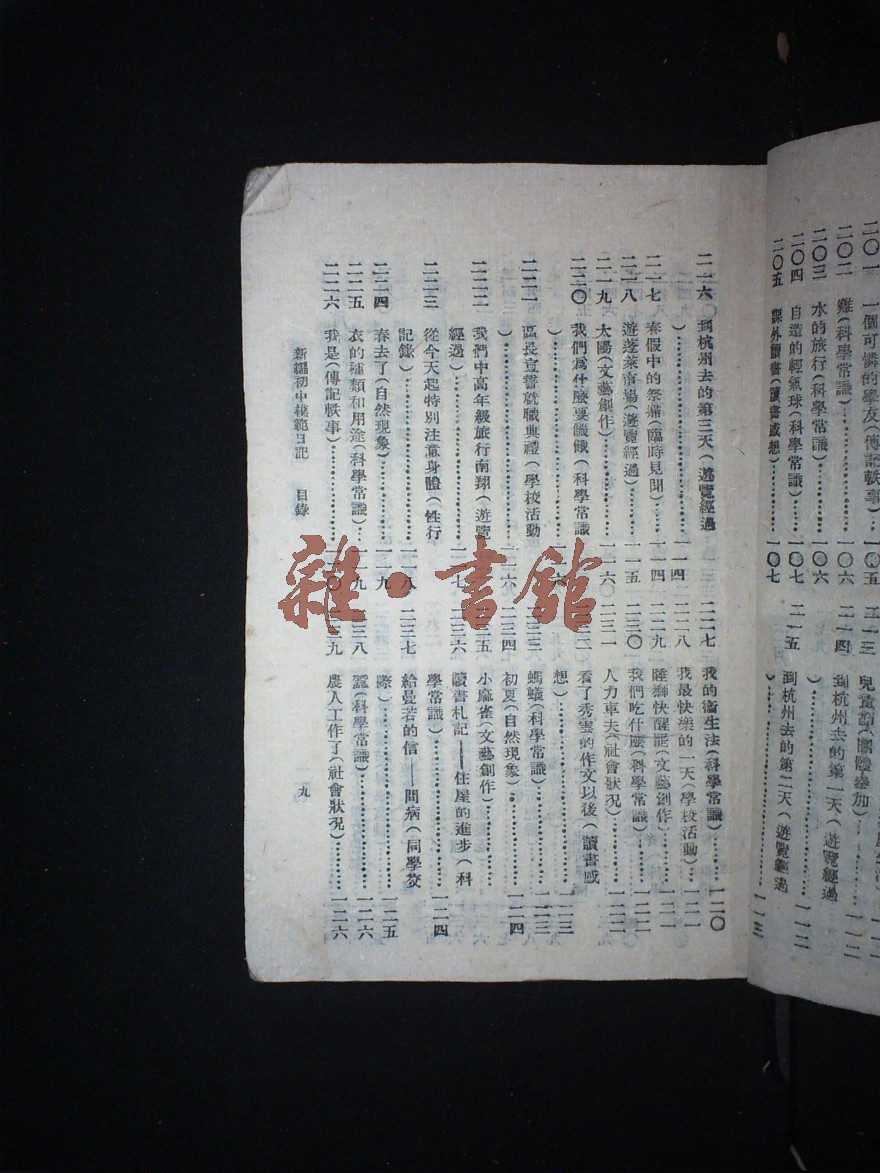 二〇一 一個可憐的學友(傳記軼事)…一〇五
二〇二 雞(科學常識)…………一〇六
二〇三 水的旅行(科學常識)…………一〇六
二〇四 自造的輕氣球(科學常識)………一〇七
二〇五 課外讀書(讀書感想)…………一〇七
二一三
二一四 到杭州去的第一天(遊覽經過
)…………一一二
二一五 到杭州去的第二天(遊覽經過
)…………一一三
二一六 到杭州去的第三天(遊覽經過
)…………一一四
二一七 春假中的祭掃(臨時見聞)……一一四
二一八 遊蓬萊市場(遊覽經過)………一一五
二一九 太陽(文藝創作)…………一一六
二二〇 我們為什麼要饑餓(科學常識
)…………
二二一 區長宣誓就職典禮(學校活動
)…………一一六
二二二 我們中高年級旅行南翔(遊覽
經過)…………一一七
二二三 從今天起特別注意身體(性行
記錄)…………一一八
二二四 春去了(自然現象)…………一一九
二二五 衣的種類和用途(科學常識)…一一九
二二六 我是(傳記軼事)…………一二〇
二二七 我的衞生法(科學常識)………一二〇
二二八 我最快樂的一天(學校活動)…一二一
二二九 睡獅快醒罷(文藝創作)………一二一
二三〇 我們吃什麼(科學常識)………一二二
二三一 人力車夫(社會狀況)…………一二二
看了秀雲的作文以後(讀書感
想)…………一二三
二三三 螞蟻(科學常識)…………一二三
二三四 初夏(自然現象)…………一二四
二三五 小麻雀(文藝創作)…………
二三六 讀書札記——住屋的進步(科
學常識)…………一二四
二三七 給曼若的信——問病(同學交
際)…………一二五
二三八 蠶(科學常識)…………一二六
二三九 農人工作了(社會狀况)………一二六
新編初中模範日記 目錄 九
雜·書館